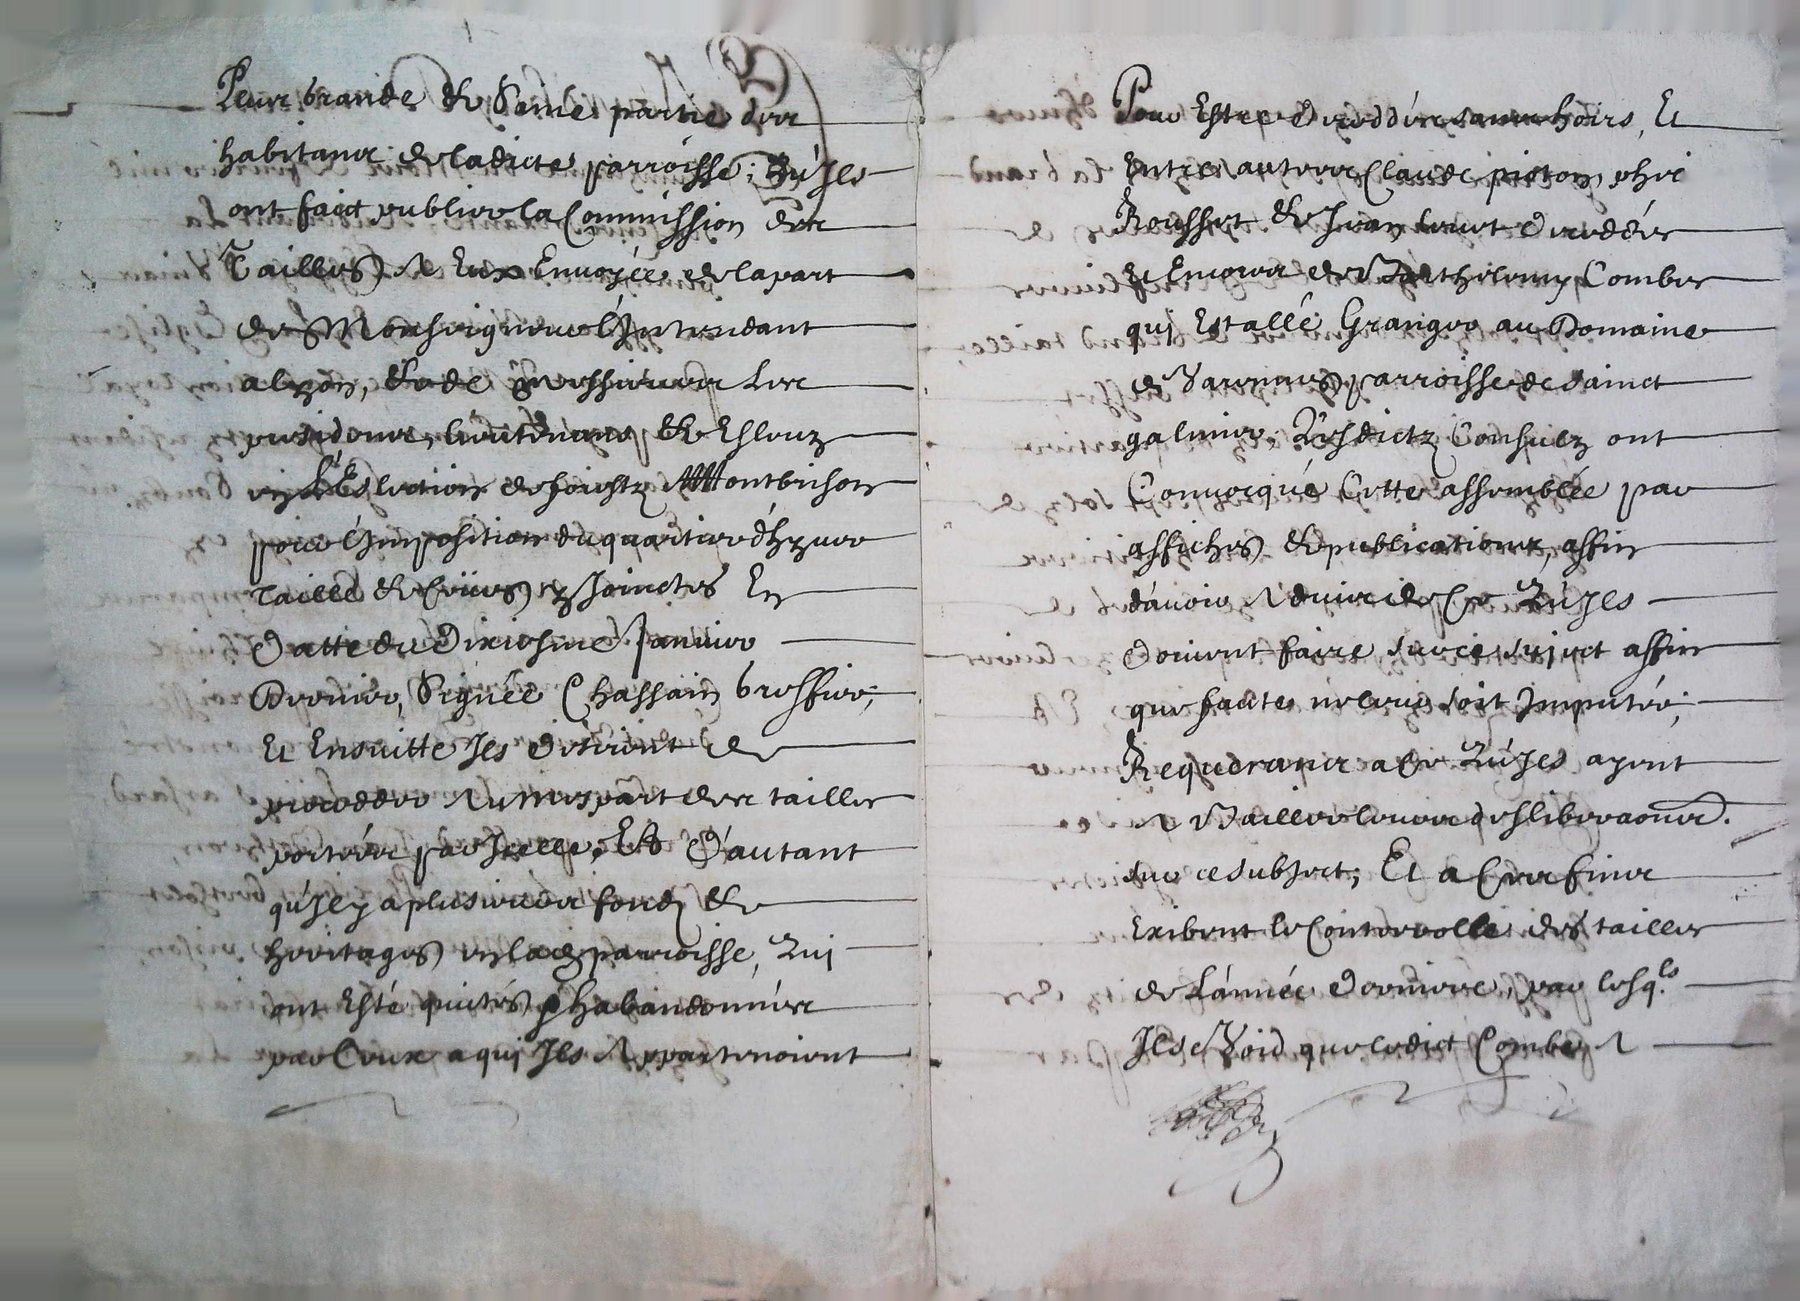 Pleur grande & Saine partie des
habitans de ladicte parroisse; Qu'Jls
ont faict publier la Commission des
Tailles A Eux Envoyée de la part
de Monseigneur l'Jntendant
a lyon, & de messieurs Les
presidens, lieutenans & Esleuz
en L'Eslection de forestz Montbrison
pour l'Jmposition du quartier d'hyver
Taille & Criies y Joinctes En
Datte du Dixiesme Janvier
Dernier, Signée Chassain greffier;
Et Ensuitte Jls Doivent de
proceder Au despart des tailles
portées par Jcelle, Et D'autant
qu'Jl y a plusieurs fondz de
heritages en lad parroisse, Qui
ont Esté quittés & habandonnées
par Ceux a qui Jls Appartenoient
Pour Estre Deceddés sans hoirs, Et
Entre autres Claude piston, phie
Rousset & Jean Deceddés
Et Encores de Barthelemy Combes
qui Est allé Granger au Domaine
de Varennes parroisse de sainct
galmier. Lesdictz Consulz ont
Convocqué Cette assemblée par
affiches & publications, affin
d'avoir Advis de Ce Qu'Jls
Doivent faire sur ce sujet affin
que faute ne leur soit Jmputée;
Requerans a Ce Qu'Jls ayent
A Bailler leurs desliberaons.
sur ce subject; Et a Ces fins
Exibent le Contrerolle des tailles
de L'année Derniere, par lesq.ls
Jl se Void que ledict Combe A